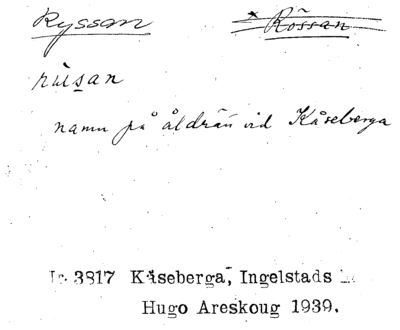 Ryssan * Rössan
rùsan
namn på åldrän vid Kåseberga
3817 Kåseberga, Ingelstads
Hugo Areskoug 1939.